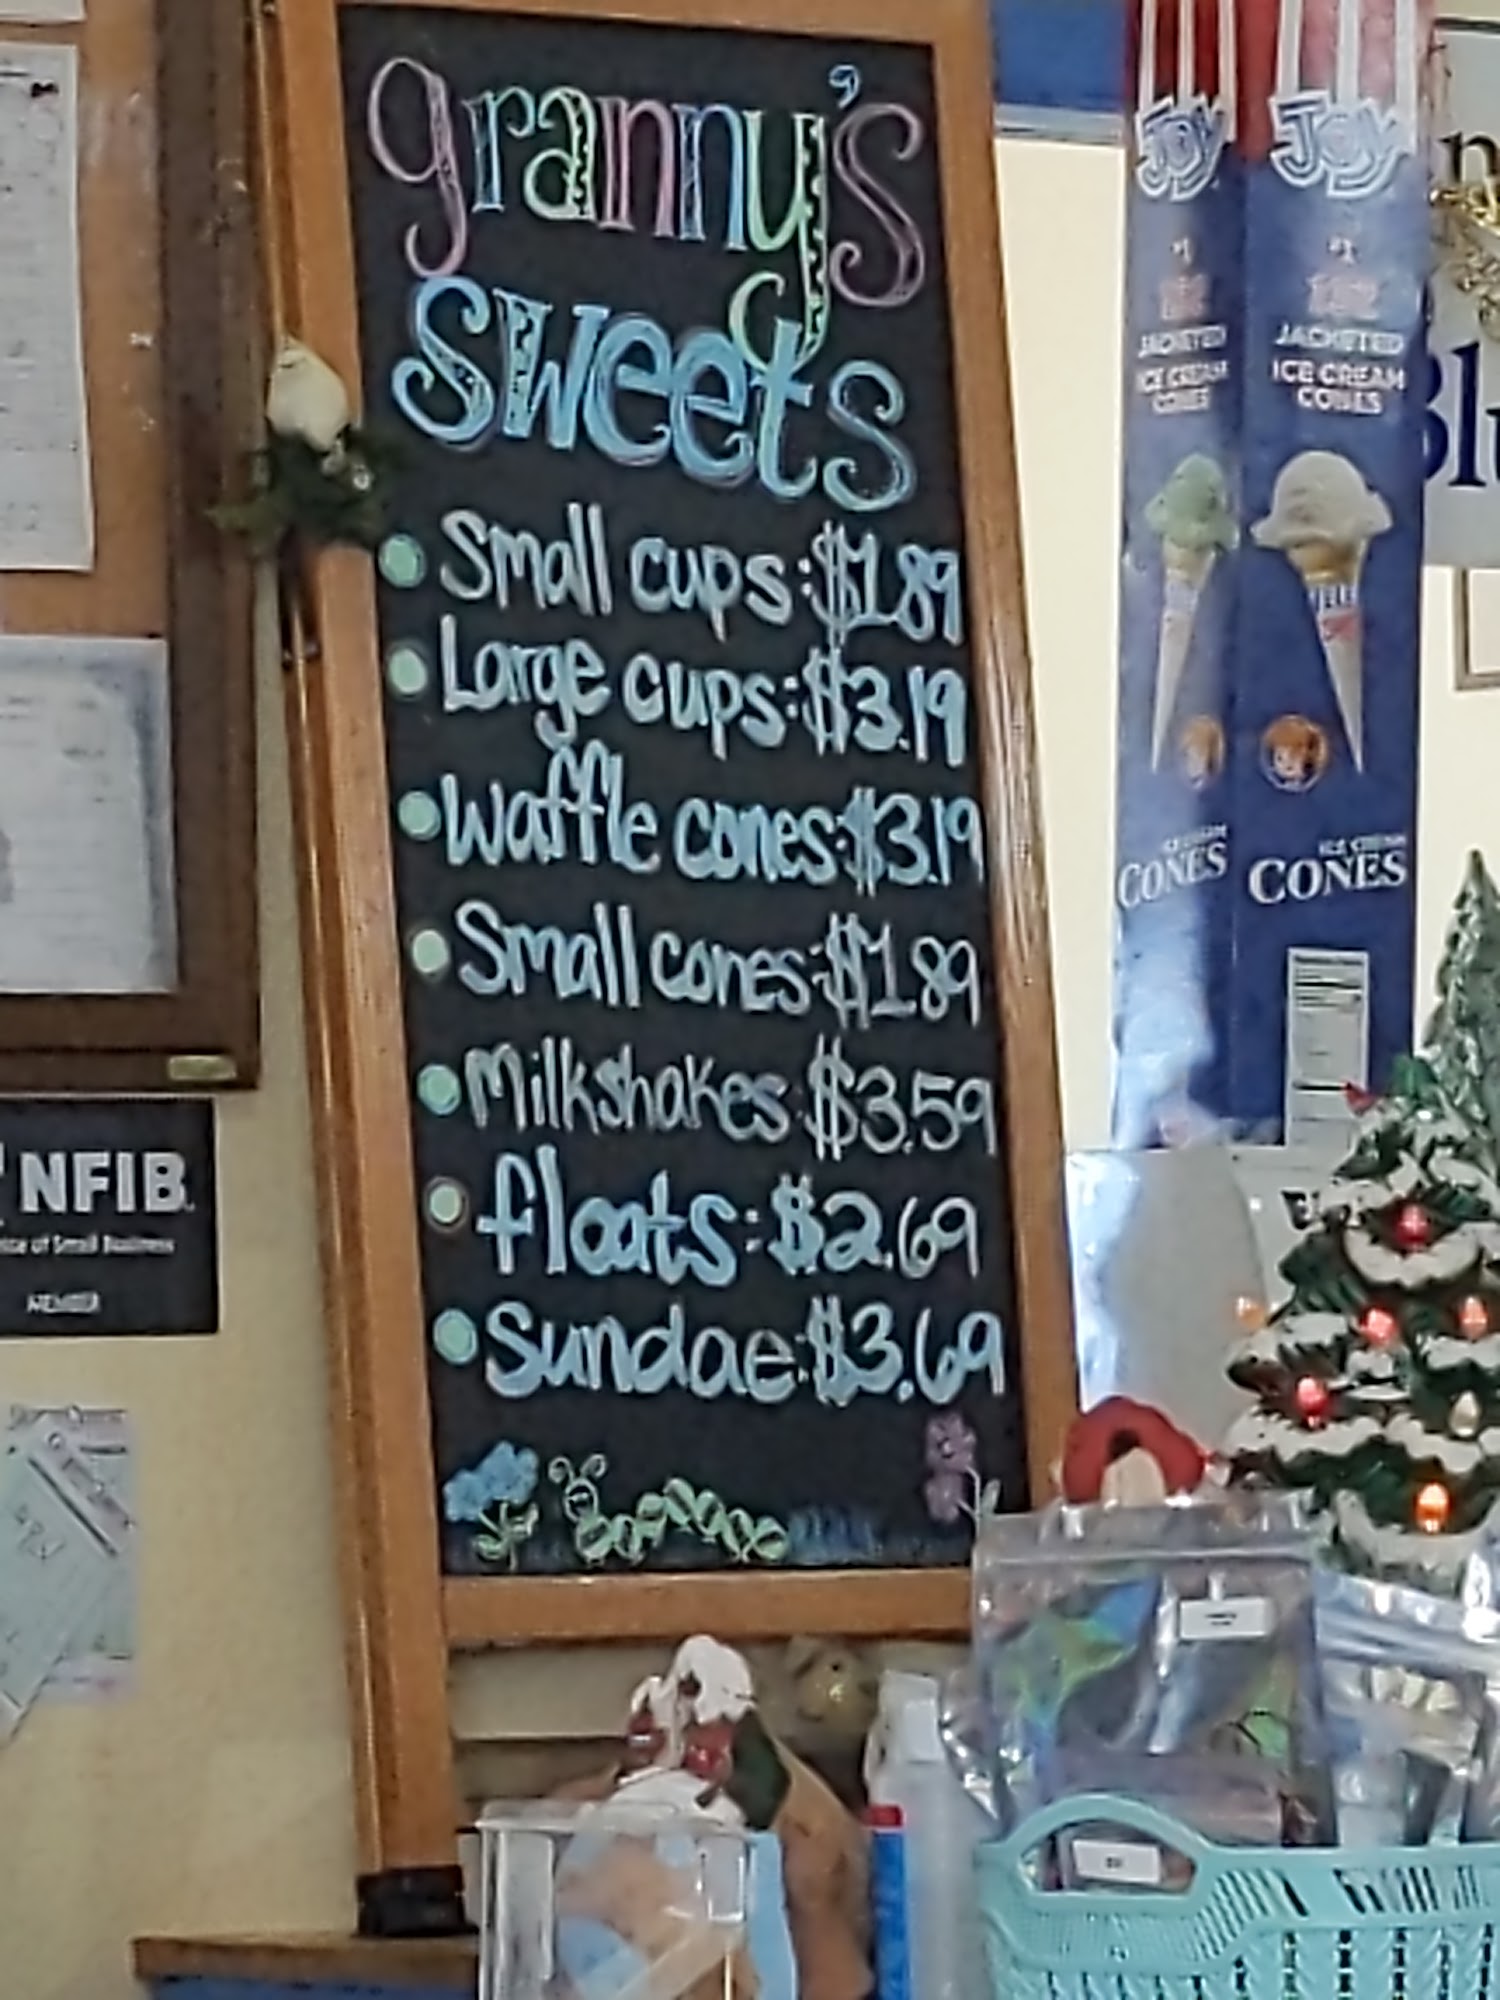 granny's
sweets
Small cups: $1.89
Large cups: $3.19
Waffle cones: $3.19
Small cones: $1.89
Milkshakes: $3.59
floats: $2.69
Sundae: $3.69
JOY
#1
JACKETED
ICE CREAM
CONES
CONES
JOY
#1
JACKETED
ICE CREAM
CONES
ICE CREAM
CONES
NFIB
of Small Business
MEMBER